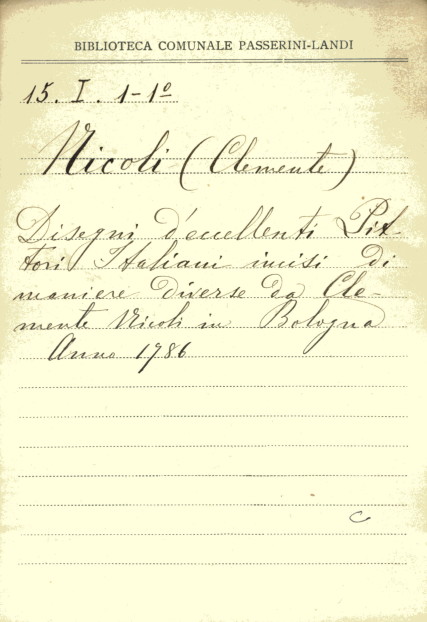 BIBLIOTECA COMUNALE PASSERINI-LANDI
15. I. 1-1º
Nicoli (Clemente)
Disegni d'eccellenti Pit-
tori Italiani incisi di
maniere diverse da Cle-
mente Nicoli in Bologna
Anno 1786
C